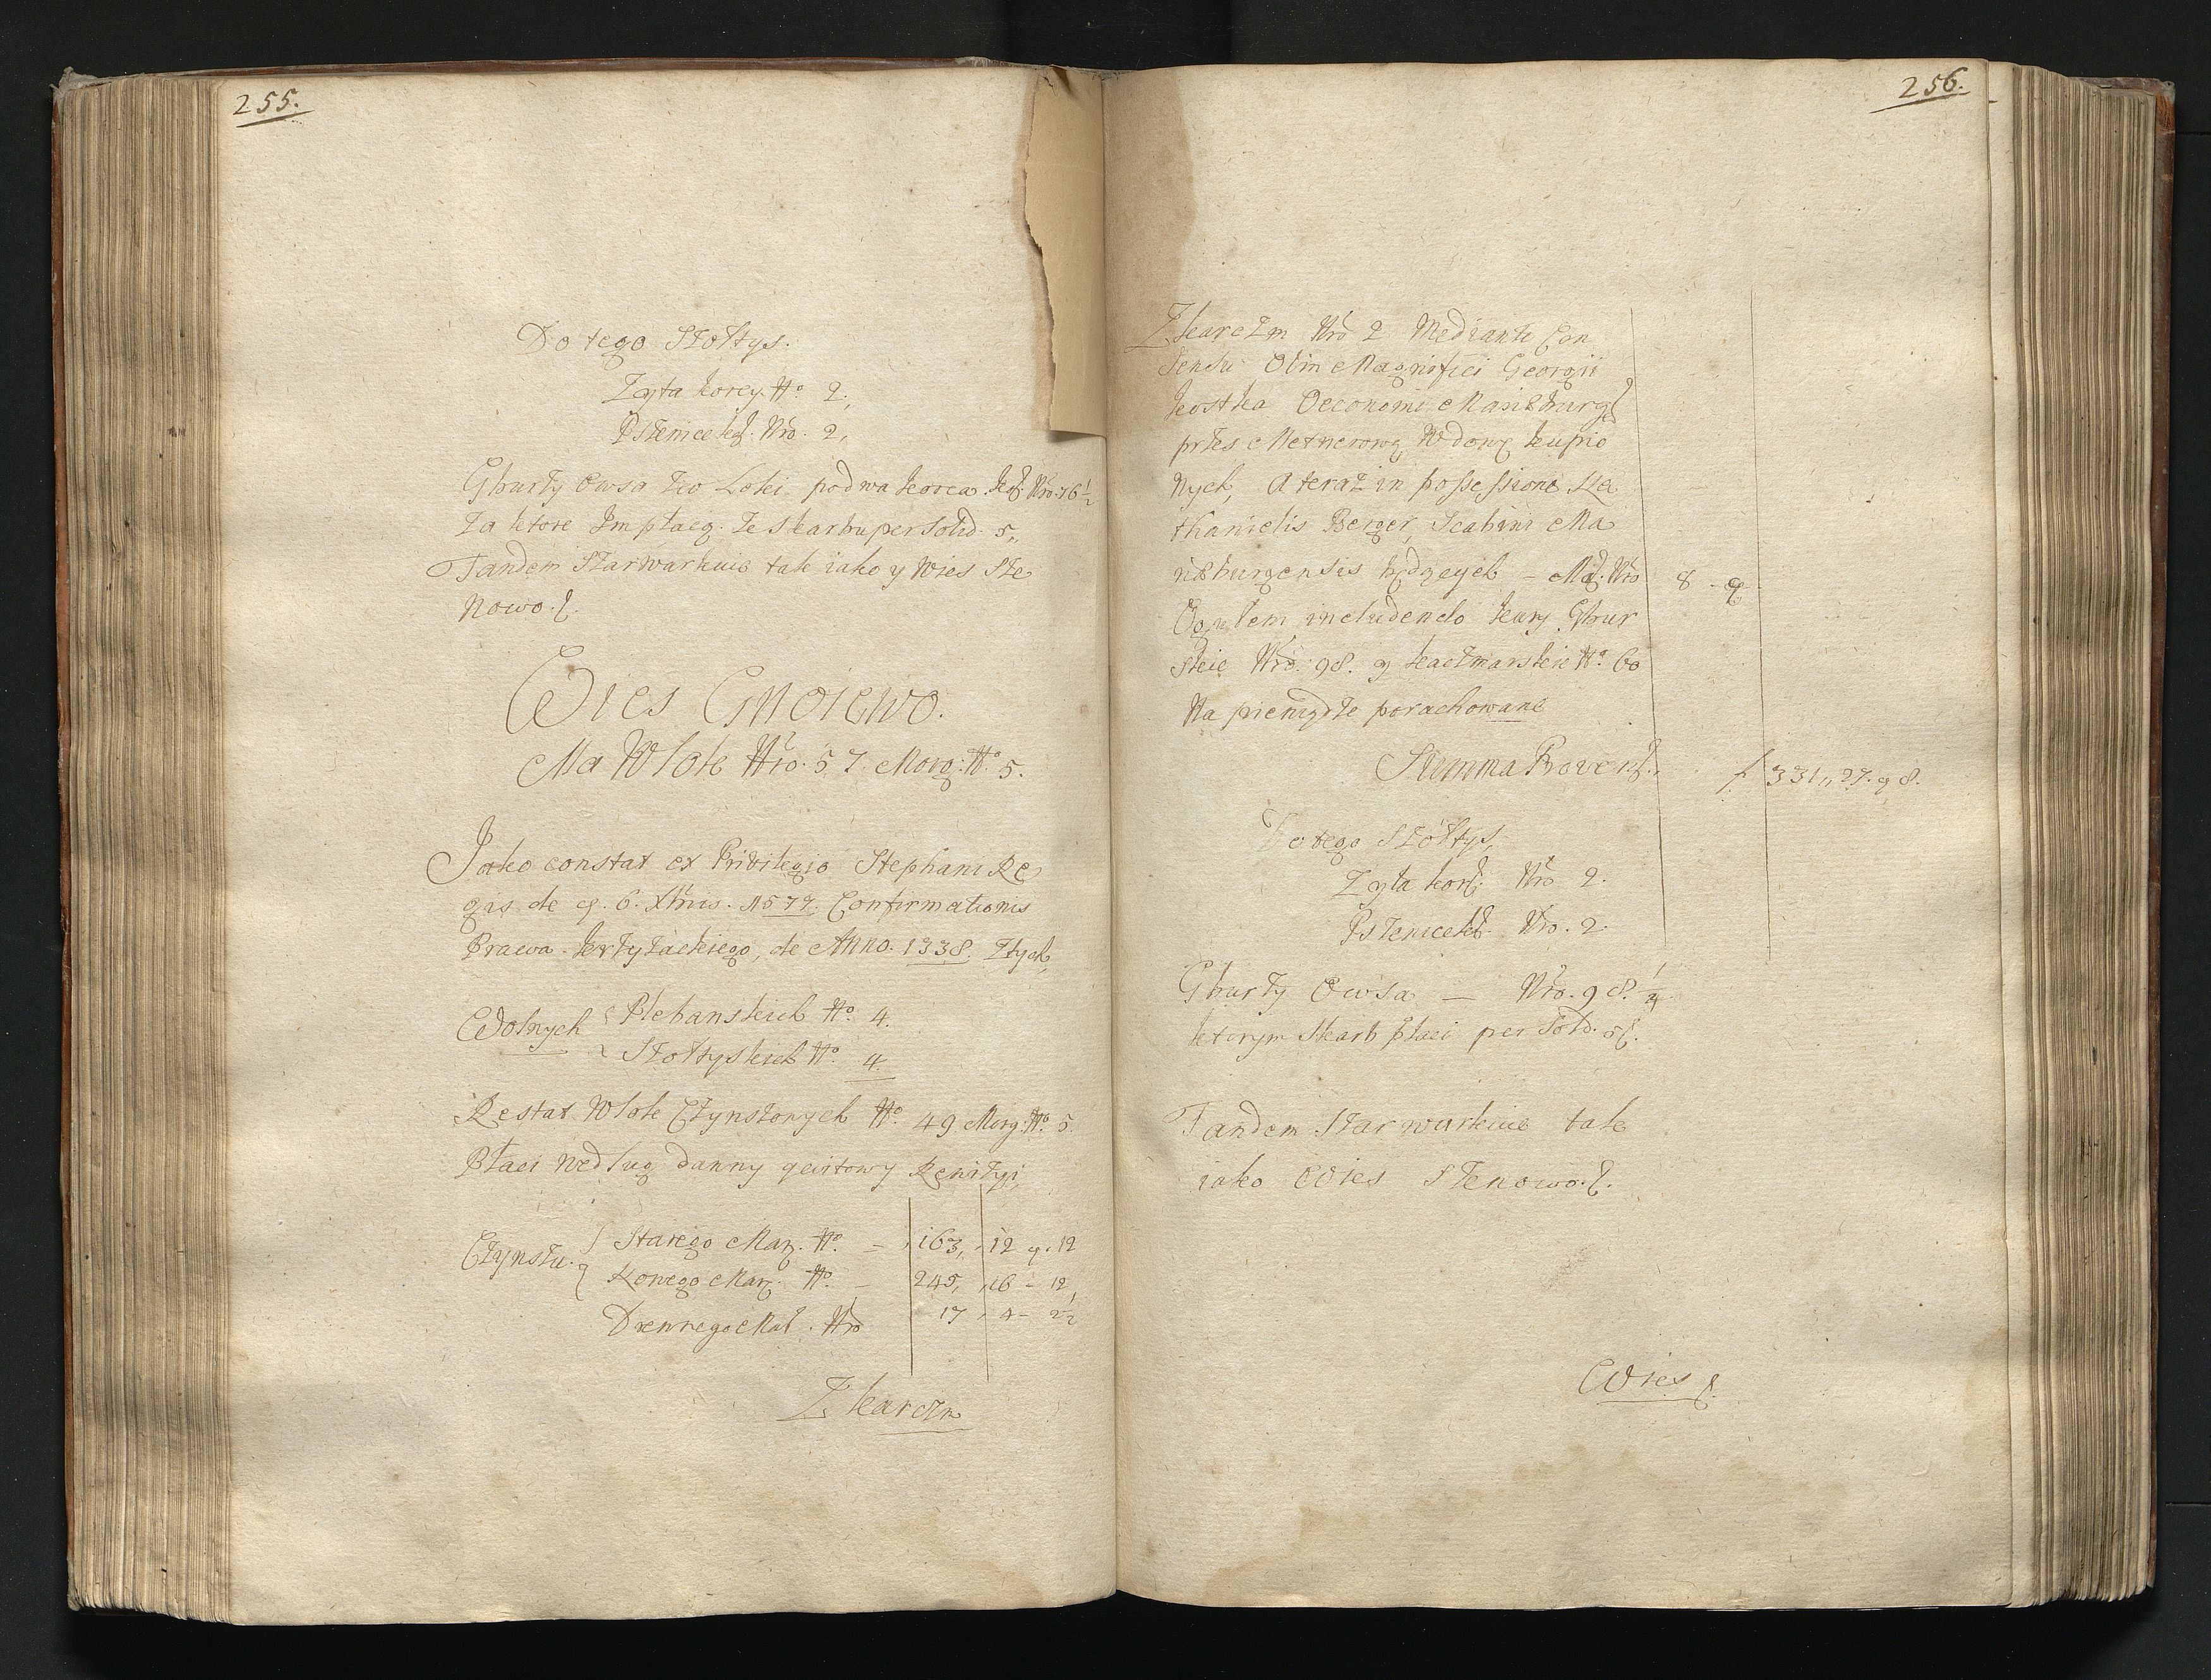 255.
Do tego Szołtys.
Zyta korcy No 2.,
Pszenice kor. Nro. 2,
Gburzy Owsa zwo Loki, po dwa korca. kor. Nro. 76 1/2
Za ktore Im płacą. ze skarbu per Solid. 5,,
Tandem Szarwarkuie tak iako y Wies Ste
nowo.
Wies Gnoiewo.
Ma Wlok Nro. 57. Morg: No 5.
Jako constat ex Privilegio Stephani Re
gis de d. 6. Xbris. 1577. Confirmationis
Prawa. krzyżackiego, de Anno. 1338. Ztych,
Wolnych { Plebanskich No. 4.
Szołtyskich No. 4.
Restat Wlok Czynszowych No. 49. Morg: No. 5
Płaci według danny qwitowy Rewizyi,
Czynszu. { Starego Marg. No. – 163,, 12 q. 12
Nowego Marg. No. – 245,, 16 – 12,
Drewnego Mar. Nro 17, 4 – 2 1/2
Z karczm
256.
Z karczm Nro 2 Mediante Con
sensu Olim Magnifici Georgii
Kostka Oeconomi Mariæburg.
przes Metnerową Wdowę kupio
nych, A teraz in possessione Na
thanielis Berger, Scabini Ma
riæburgensis będących – Mar. Nro 8 – q
Ogułem includendo kury Gbur
skie Nro. 98. y kaczmarskie No. 60
Na pieniądze porachowane
Summa Proven. f 331,, 27. q 8.
Do tego Szołtys,
Zyta kor. Nro 2.
Pszenice kor. Nro. 2.
Gburzy Owsa – Nro. 98. 1/4
ktorym Skarb płaci per Sold. 5.
Tandem Szarwarkuie tak
iako Wies Stenowo.
Wies